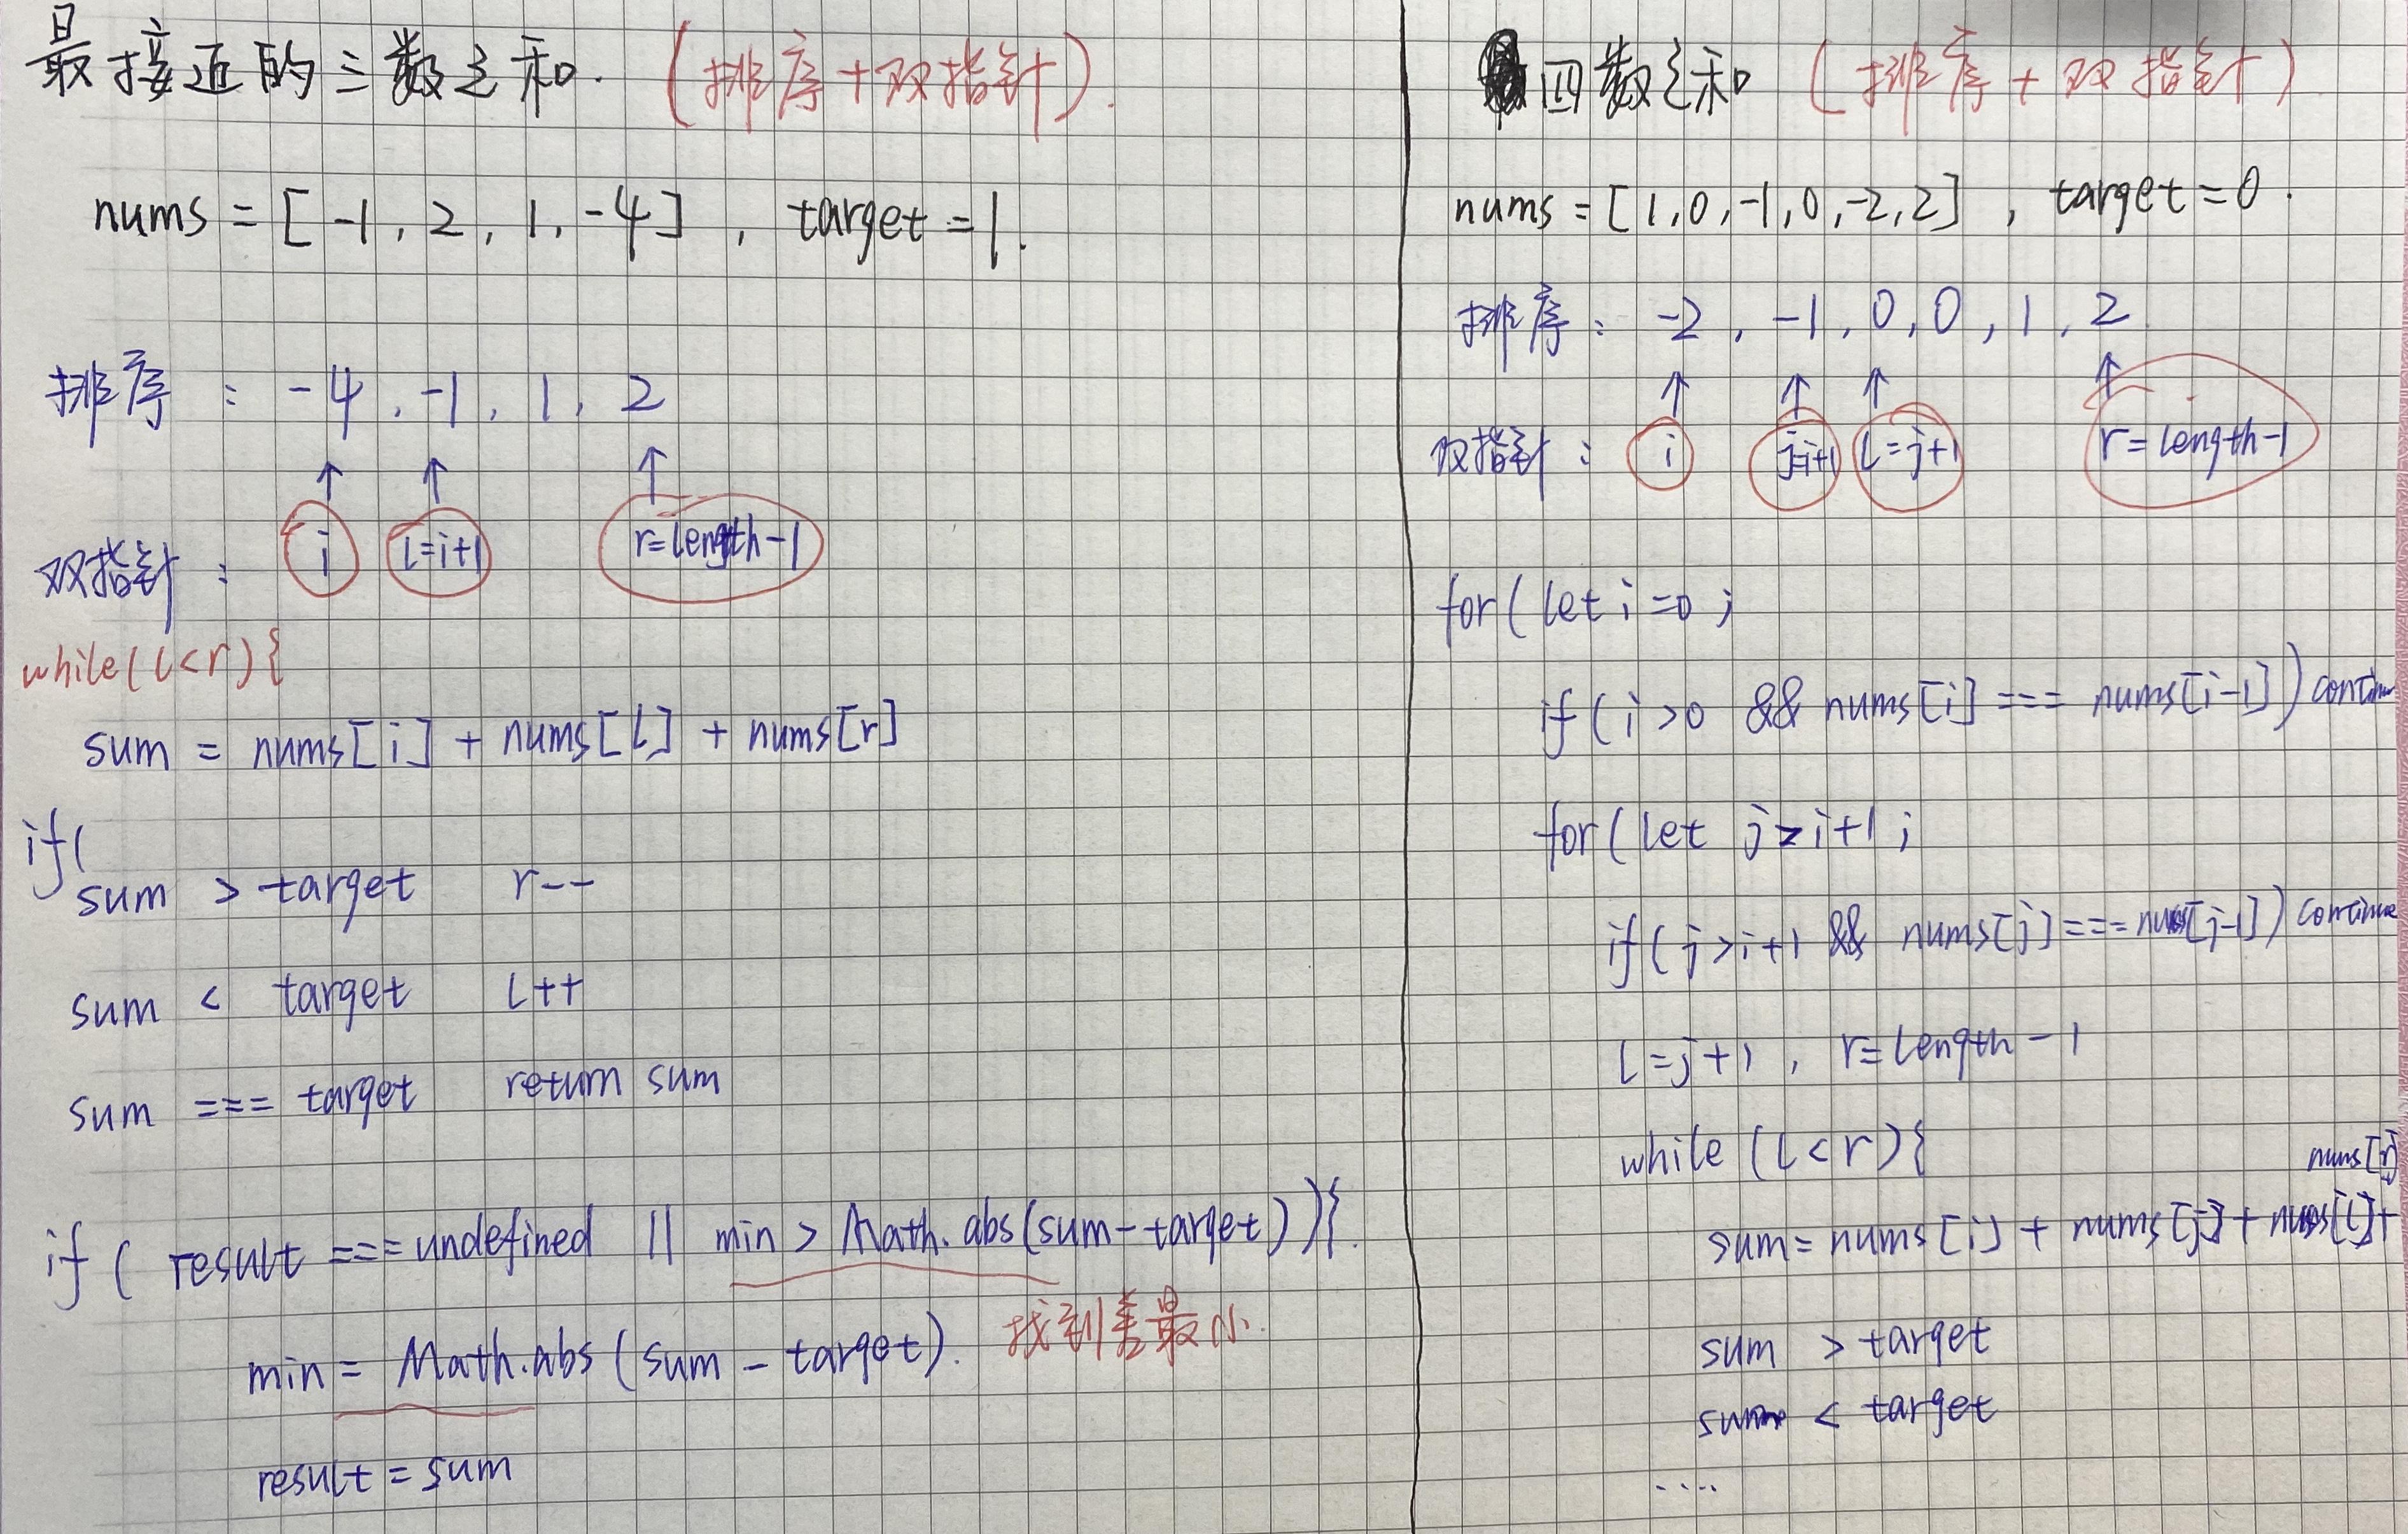 最接近的三数之和. (排序+双指针).
nums = [ -1, 2, 1, -4 ] , target = 1.
排序 : -4, -1, 1, 2
双指针 : i l=i+1 r=length-1
while(l<r){
sum = nums[i] + nums[l] + nums[r]
if(
sum > target r--
sum < target l++
sum === target return sum
if ( result === undefined || min > Math.abs(sum-target)){.
min = Math.abs (sum - target). 找到差最小.
result = sum
四数之和 (排序 + 双指针)
nums = [1,0,-1,0,-2,2] , target = 0.
排序 : -2, -1, 0, 0, 1, 2
双指针 : i j=i+1 l=j+1 r=length-1
for( let i=0 ;
if ( i>0 && nums[i] === nums[i-1]) continue
for( let j=i+1 ;
if ( j>i+1 && nums[j] === nums[j-1]) continue
l=j+1 , r=length-1
while (l<r){
sum = nums[i] + nums[j] + nums[l] +
nums[r]
sum > target
sum < target
....